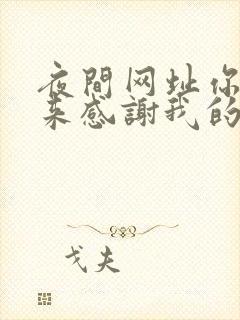 夜間网址你
来感謝我的
戈夫